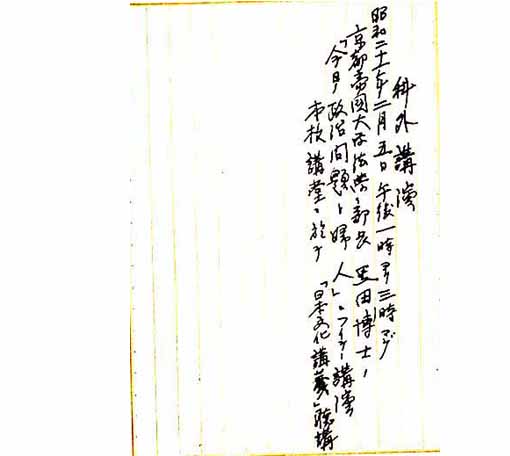 科外講演
昭和二十一年二月五日午後一時ヨリ三時マデ
京都帝国大学法学部長 黒田博士ノ
「今日ノ政治問題ト婦人」ニツイテノ講演
本校講堂ニ於テ 「日本文化講義」聴講